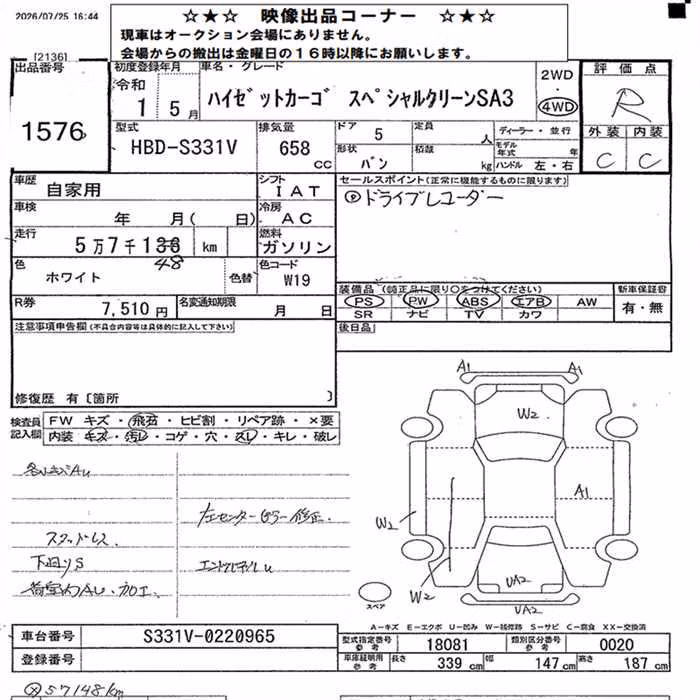 2026/07/25 16:44
☆★☆ 映像出品コーナー ☆★☆
現車はオークション会場にありません。
会場からの搬出は金曜日の16時以降にお願いします。
[2136]
出品番号
1576
初度登録年月
令和
1 5月
車名・グレード
ハイゼットカーゴ スペシャルクリーンSA3
2WD
・
4WD
評価点
R
外装 内装
C C
型式
HBD-S331V
排気量
658 cc
ドア 5
定員 人
形状 バン
積載 kg
ディーラー・並行
モデル年式 年
ハンドル 左・右
車歴
自家用
シフト
IAT
車検
年 月( 日)
冷房
AC
走行
5万7千136 km
48
燃料
ガソリン
色
ホワイト
色替
色コード
W19
R券
7,510円
名変通知期限
月 日
セールスポイント(正常に機能するものに限ります)
ドライブレコーダー
装備品 (純正品に限り○をつけてください)
PS PW ABS エアB AW
SR ナビ TV カワ
新車保証書
有・無
後日品
注意事項申告欄(不具合内容等は具体的に記入して下さい)
修復歴 有〔箇所 〕
検査員記入欄
FW キズ・飛石・ヒビ割・リペア跡・×要
内装 キズ・汚レ・コゲ・穴・スレ・キレ・破レ
スタッドレス
下回りS
荷室内AU・加工
左センターピラー修正
A1 A1
W2
A1
W2
W2
UA2
UA2
スペア
A-キズ E-エクボ U-凹み W-補修跡 S-サビ C-腐食 XX-交換済
車台番号
S331V-0220965
登録番号
型式指定番号 参考
18081
類別区分番号 参考
0020
車庫証明用 参考
長さ 339cm 幅 147cm 高さ 187cm
57148km